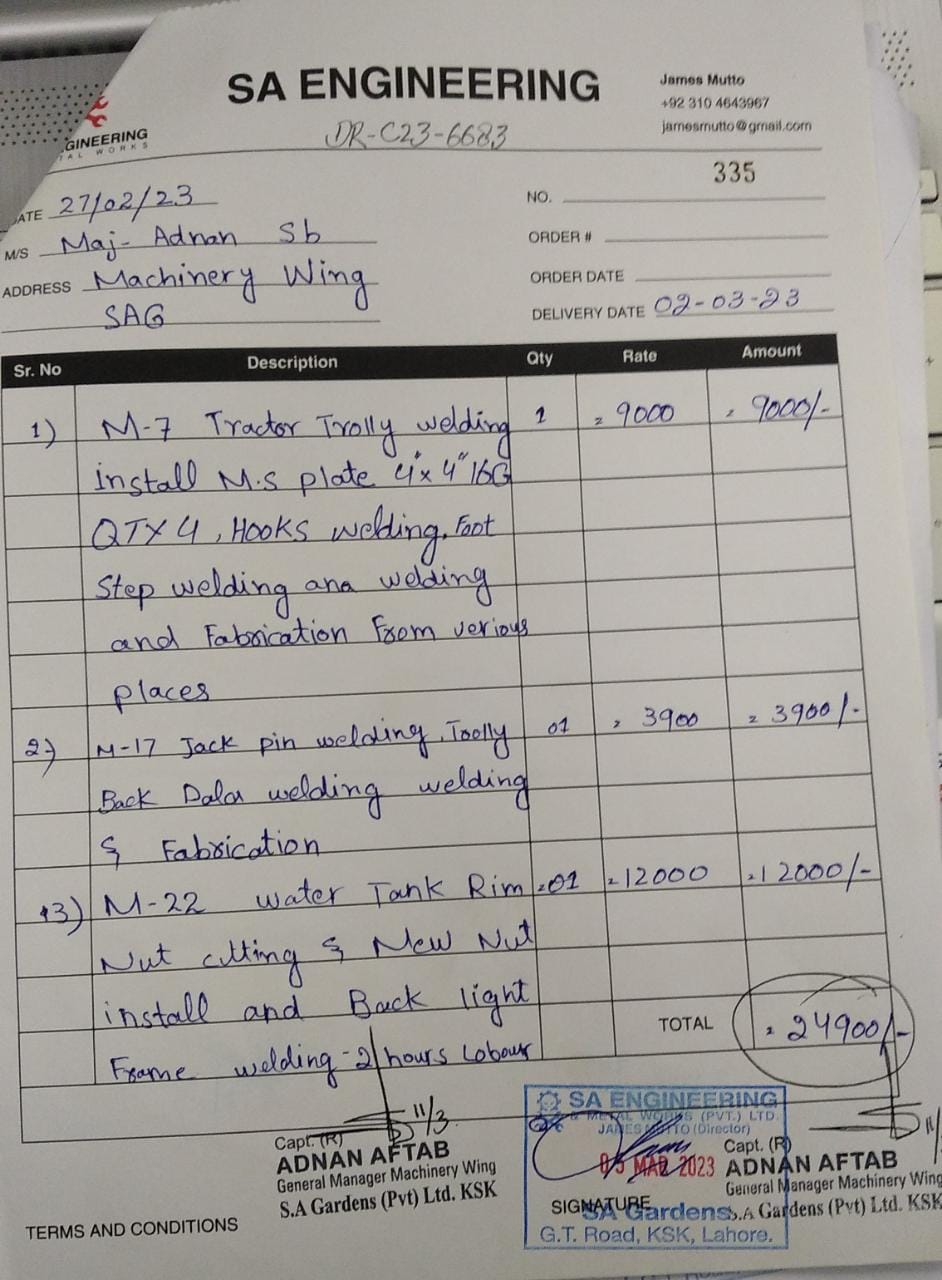 SA ENGINEERING
James Mutto
+92 310 4643967
jamesmutto@gmail.com
GINEERING
TAL WORKS
DR-C23-6683
335
NO.
ATE 27/02/23
M/S Maj- Adnan Sb
ORDER #
ADDRESS Machinery Wing
SAG
ORDER DATE
DELIVERY DATE 02-03-23
Sr. No Description Qty Rate Amount
1) M-7 Tractor Trolly welding 1 = 9000 = 9000/-
install M.S plate 4'x 4" 16G
QTY 4, Hooks welding, Foot
Step welding ana welding
and Fabrication From verious
places
2) M-17 Jack pin welding, Toolly 01 = 3900 = 3900/-
Back Dala welding welding
& Fabrication
3) M-22 water Tank Rim =01 =12000 =12000/-
Nut ctting & New Nut
install and Back light
Frame welding - 2 hours Lobour
TOTAL = 24900/-
11/3
Capt. (R)
ADNAN AFTAB
General Manager Machinery Wing
S.A Gardens (Pvt) Ltd. KSK
SA ENGINEERING
& METAL WORKS (PVT.) LTD.
JAMES MUTTO (Director)
MAR 2023
SIGNATURE
SA Gardens
G.T. Road, KSK, Lahore.
11/
Capt. (R)
ADNAN AFTAB
General Manager Machinery Wing
S.A Gardens (Pvt) Ltd. KSK
TERMS AND CONDITIONS